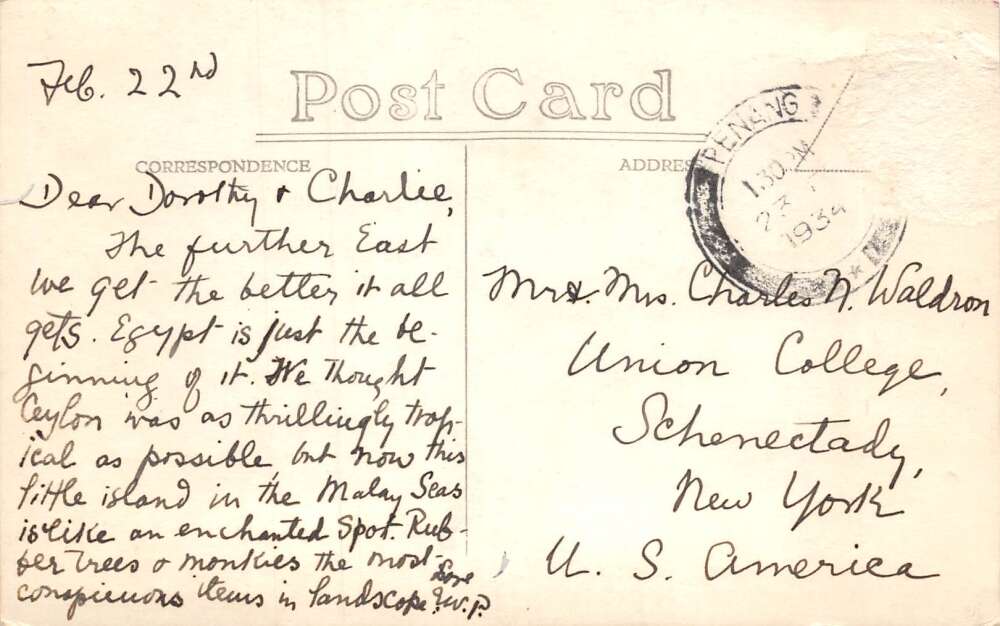 Feb. 22nd
Post Card
CORRESPONDENCE
Dear Dorothy & Charlie,
The further East
we get the better it all
gets. Egypt is just the be-
ginning of it. We thought
Ceylon was as thrillingly trop-
ical as possible, but now this
little island in the Malay Seas
is like an enchanted spot. Rub-
ber trees & monkies the most
conspicuous items in landscape.
Love
E.W.P.
ADDRES
PENANG
1.30 PM
23
1934
Mr & Mrs. Charles N. Waldron
Union College,
Schenectady,
New York
U. S. America